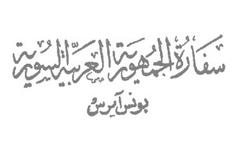 سفارة الجمهورية العربية السورية
بونس آيرس